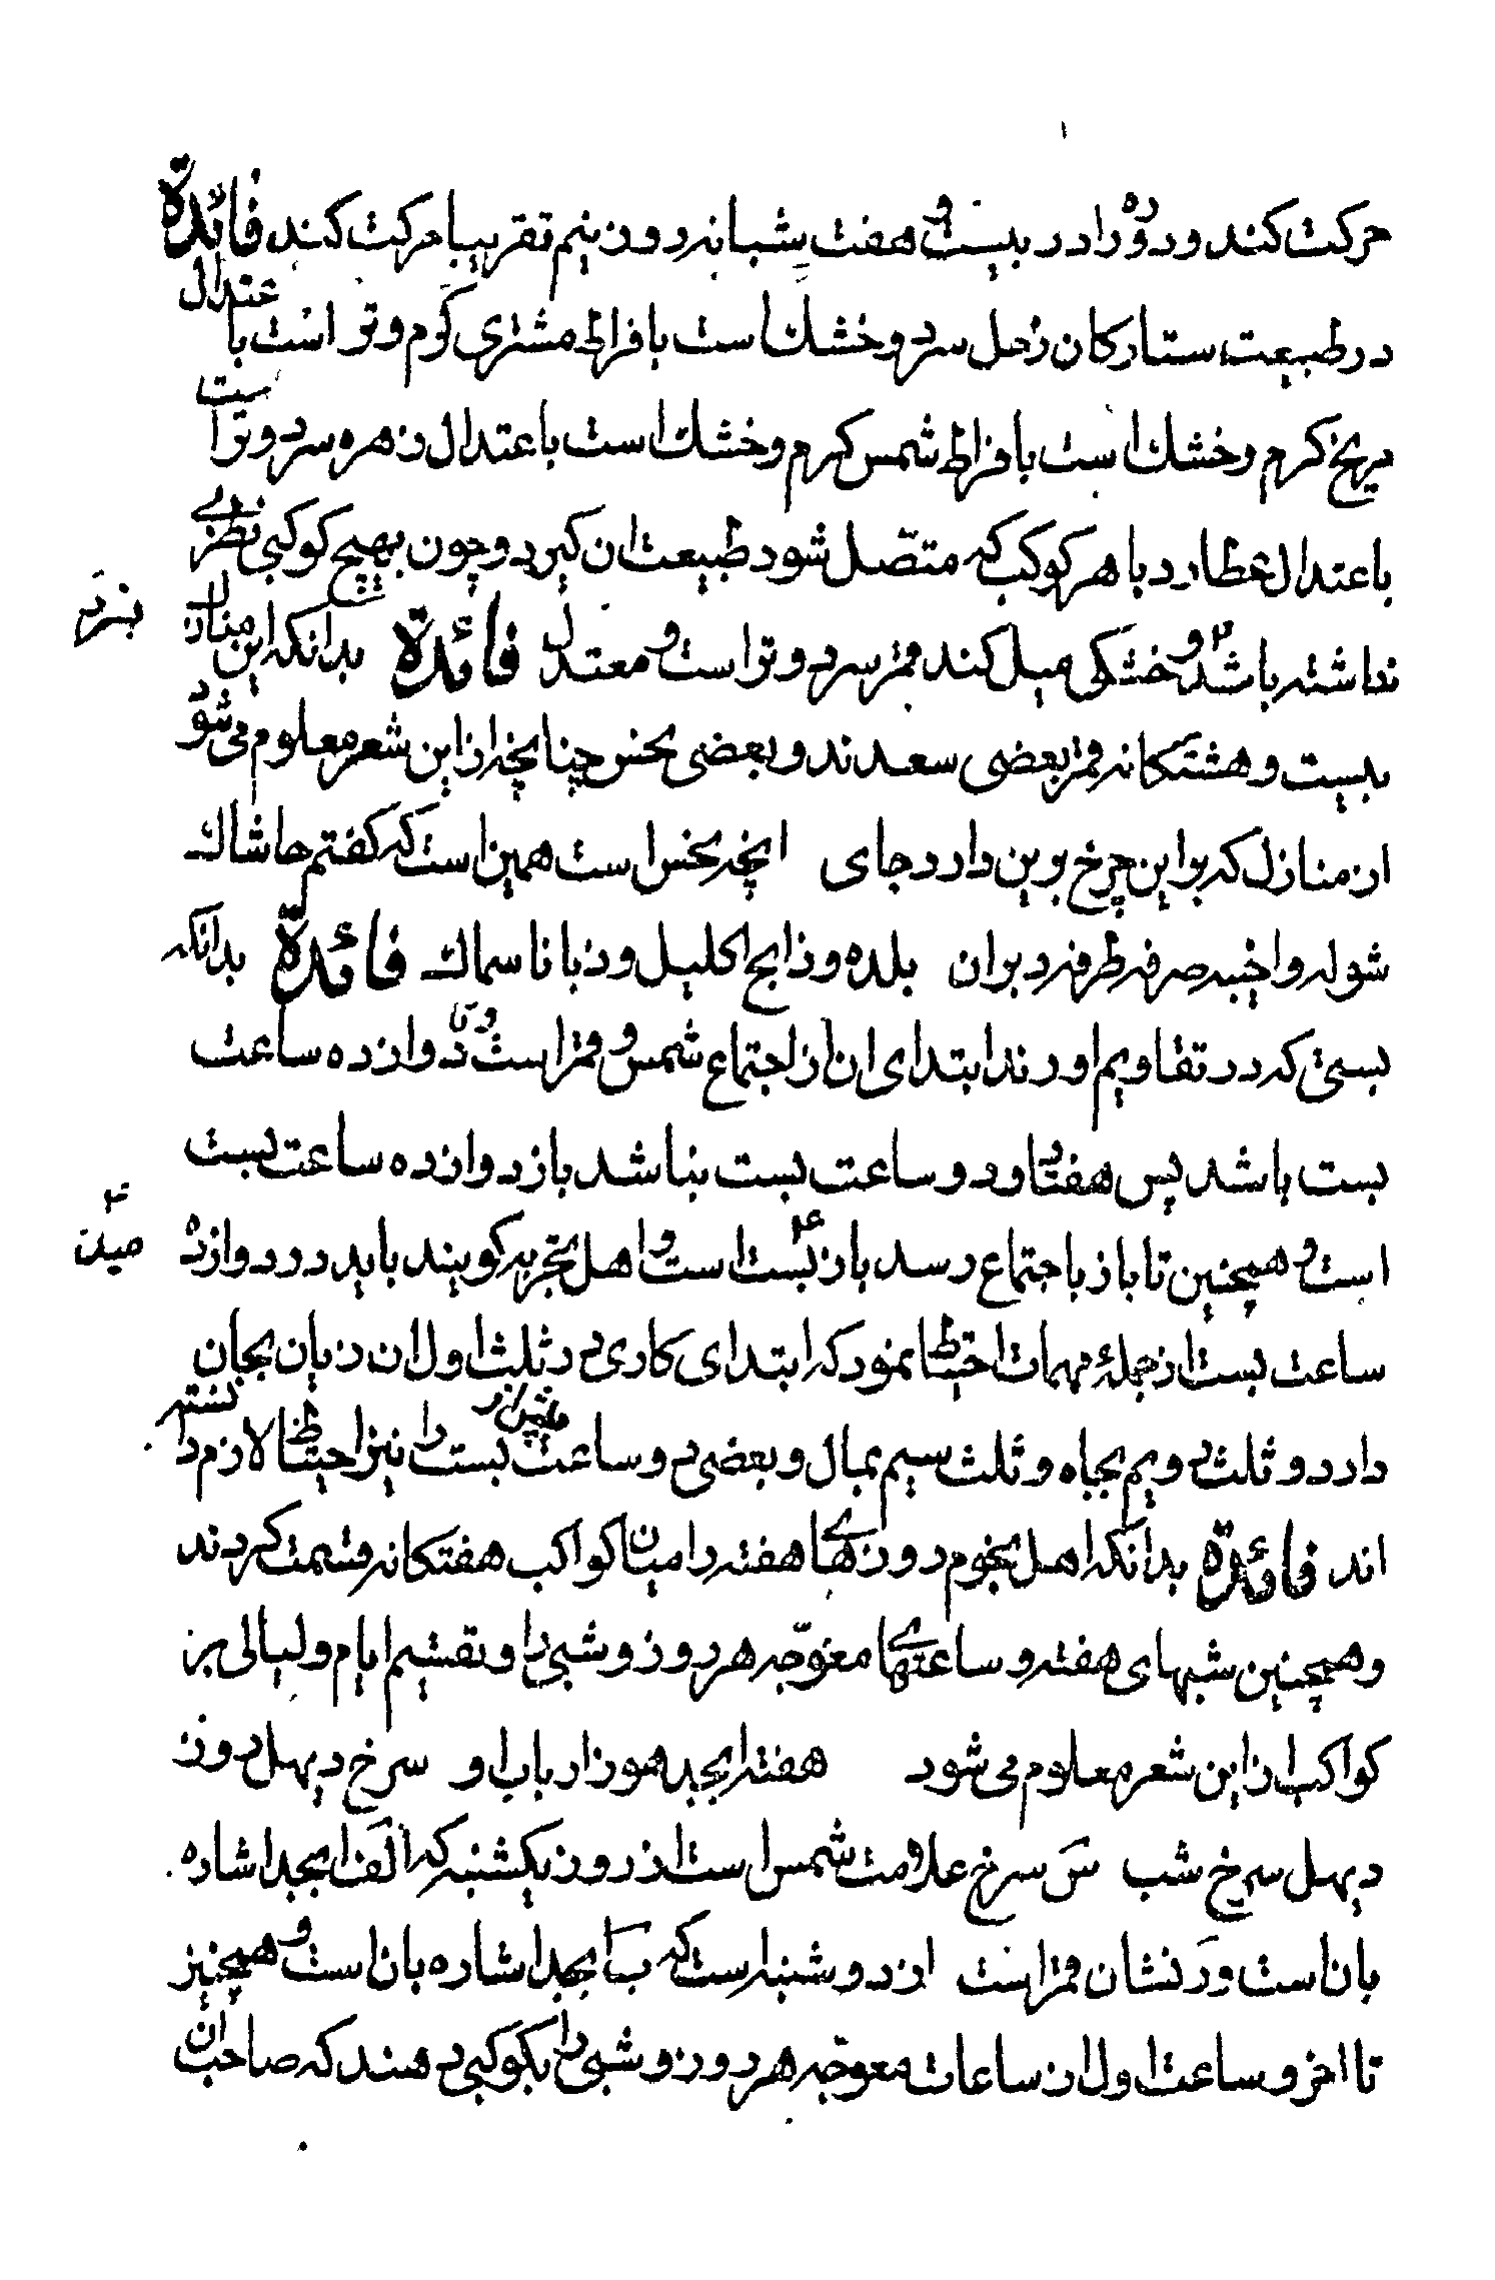 حرکت کند و دوره را در بیست و هفت شبانه روز و نیم تقریبا حرکت کند فائدة
در طبیعت ستارکان زحل سرد و خشك است بافراط مشتری کرم و تر است باعتدال
مریخ کرم و خشك است بافراط شمس کرم و خشك است باعتدال زهره سرد و تر است
باعتدال عطارد با هر کوکب که متصّل شود طبیعت ان کیرد و چون بهیچ کوکبی نظری
نداشته باشد و خشکی میل کند قمر سرد و تر است و معتدل فائدة بدانکه این منازل
بیست و هشتکانه قمر بعضی سعدند و بعضی نحس چنانچه از این شعر معلوم می شود
از منازل که بر این چرخ برین دارد جای انچه نحس است همین است که کفتم حاشاك
شوله و اخبیه صرفه طرفه دبران بلده و ذابح اکلیل و زبانا سماك فائدة بدانکه
بستی که در تقاویم اورند ابتدای ان از اجتماع شمس و قمر است و تا دوازده ساعت
بست باشد پس هفتاد و دو ساعت بست نباشد باز دوازده ساعت بست
است و همچنین تا باز باجتماع رسد باز بست است و اهل تجربه کویند باید در دوازده
ساعت بست از جمله مهمات احتیاط نمود که ابتدای کاری در ثلث اول ان زیان بجان
دارد و ثلث دویم بجاه و ثلث سیم بمال و بعضی دو ساعت بست را نیز احتیاط لازم دانسته
اند فائدة بدانکه اهل نجوم روزهای هفته را میان کواکب هفتکانه قسمت کردند
و همچنین شبهای هفته و ساعتهای معوّجه هر روز و شبی را و تقسیم ایام و لیالی بر
کواکب از این شعر معلوم می شود هفته ابجد هوز ارباب او سرخ دیهل روز
دیهل سرخ شب سَ سرخ علامت شمس است از روز یکشنبه که الف ابجد اشاره
بان است و رَ نشان قمر است از دوشنبه است که ب ابجد اشاره بان است و همچنین
تا اخر و ساعت اول از ساعات معوّجه هر روز و شبی را بکوکبی دهند که صاحب ان